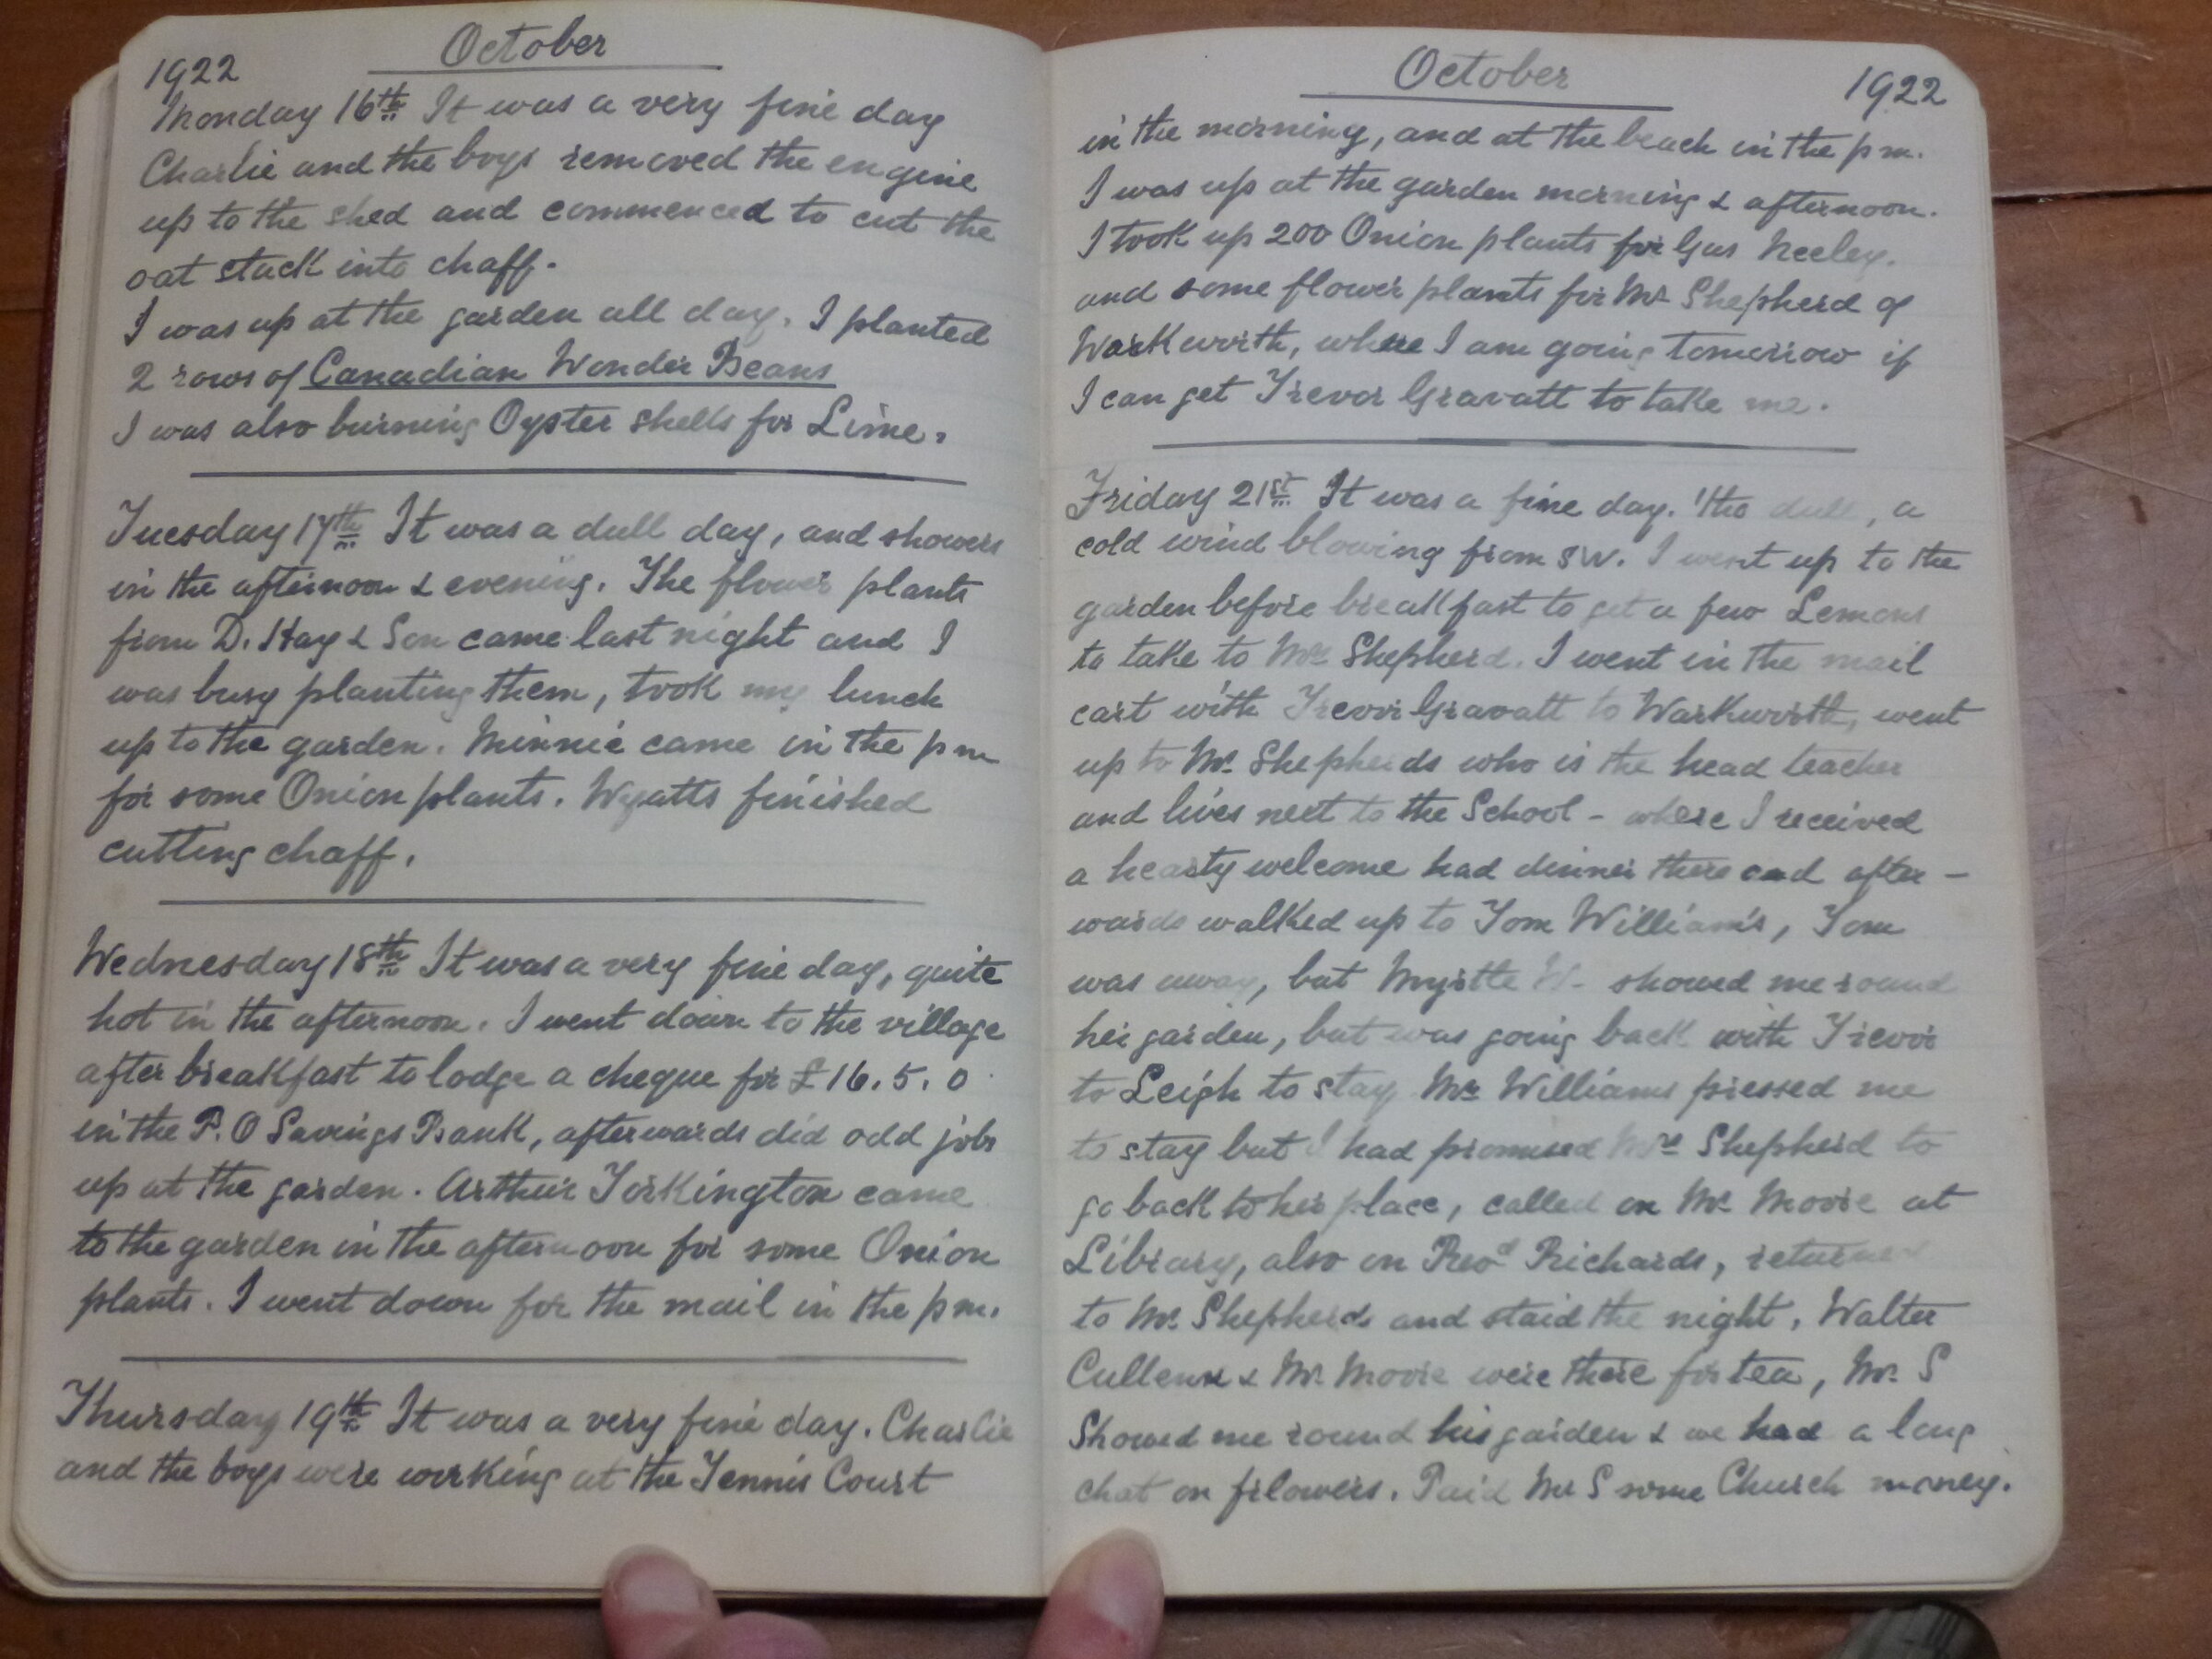 1922
October
Monday 16th It was a very fine day
Charlie and the boys removed the engine
up to the shed and commenced to cut the
oat stack into chaff.
I was up at the garden all day. I planted
2 rows of Canadian Wonder Beans
I was also burning Oyster shells for Lime.
Tuesday 17th It was a dull day, and showers
in the afternoon & evening. The flower plants
from D. Hay & Son came last night and I
was busy planting them, took my lunch
up to the garden. Minnie came in the pm
for some Onion plants. Wyatts finished
cutting chaff.
Wednesday 18th It was a very fine day, quite
hot in the afternoon. I went down to the village
after breakfast to lodge a cheque for £16.5.0
in the P.O Savings Bank, afterwards did odd jobs
up at the garden. Arthur Torkington came
to the garden in the afternoon for some Onion
plants. I went down for the mail in the pm.
Thursday 19th It was a very fine day. Charlie
and the boys were working at the Tennis Court
October
1922
in the morning, and at the beach in the pm.
I was up at the garden morning & afternoon.
I took up 200 Onion plants for Gus Neeley.
and some flower plants for Mr Shepherd of
Warkworth, where I am going tomorrow if
I can get Trevor Gravatt to take me.
Friday 21st It was a fine day. 'tho dull, a
cold wind blowing from SW. I went up to the
garden before breakfast to get a few Lemons
to take to Mrs Shepherd. I went in the mail
cart with Trevor Gravatt to Warkworth, went
up to Mr. Shepherds who is the head teacher
and lives next to the School - where I received
a hearty welcome had dinner there and after-
wards walked up to Tom William's, Tom
was away, but Myrtle W- showed me round
her garden, but was going back with Trevor
to Leigh to stay Mr Williams pressed me
to stay but I had promised Mrs Shepherd to
go back to her place, called on Mr. Moore at
Library, also on Revd Richards, returned
to Mr. Shepherds and staid the night. Walter
Cullen & Mr. Moore were there for tea, Mr. S
Showed me round his garden & we had a long
chat on flowers. Paid Mr S some Church money.